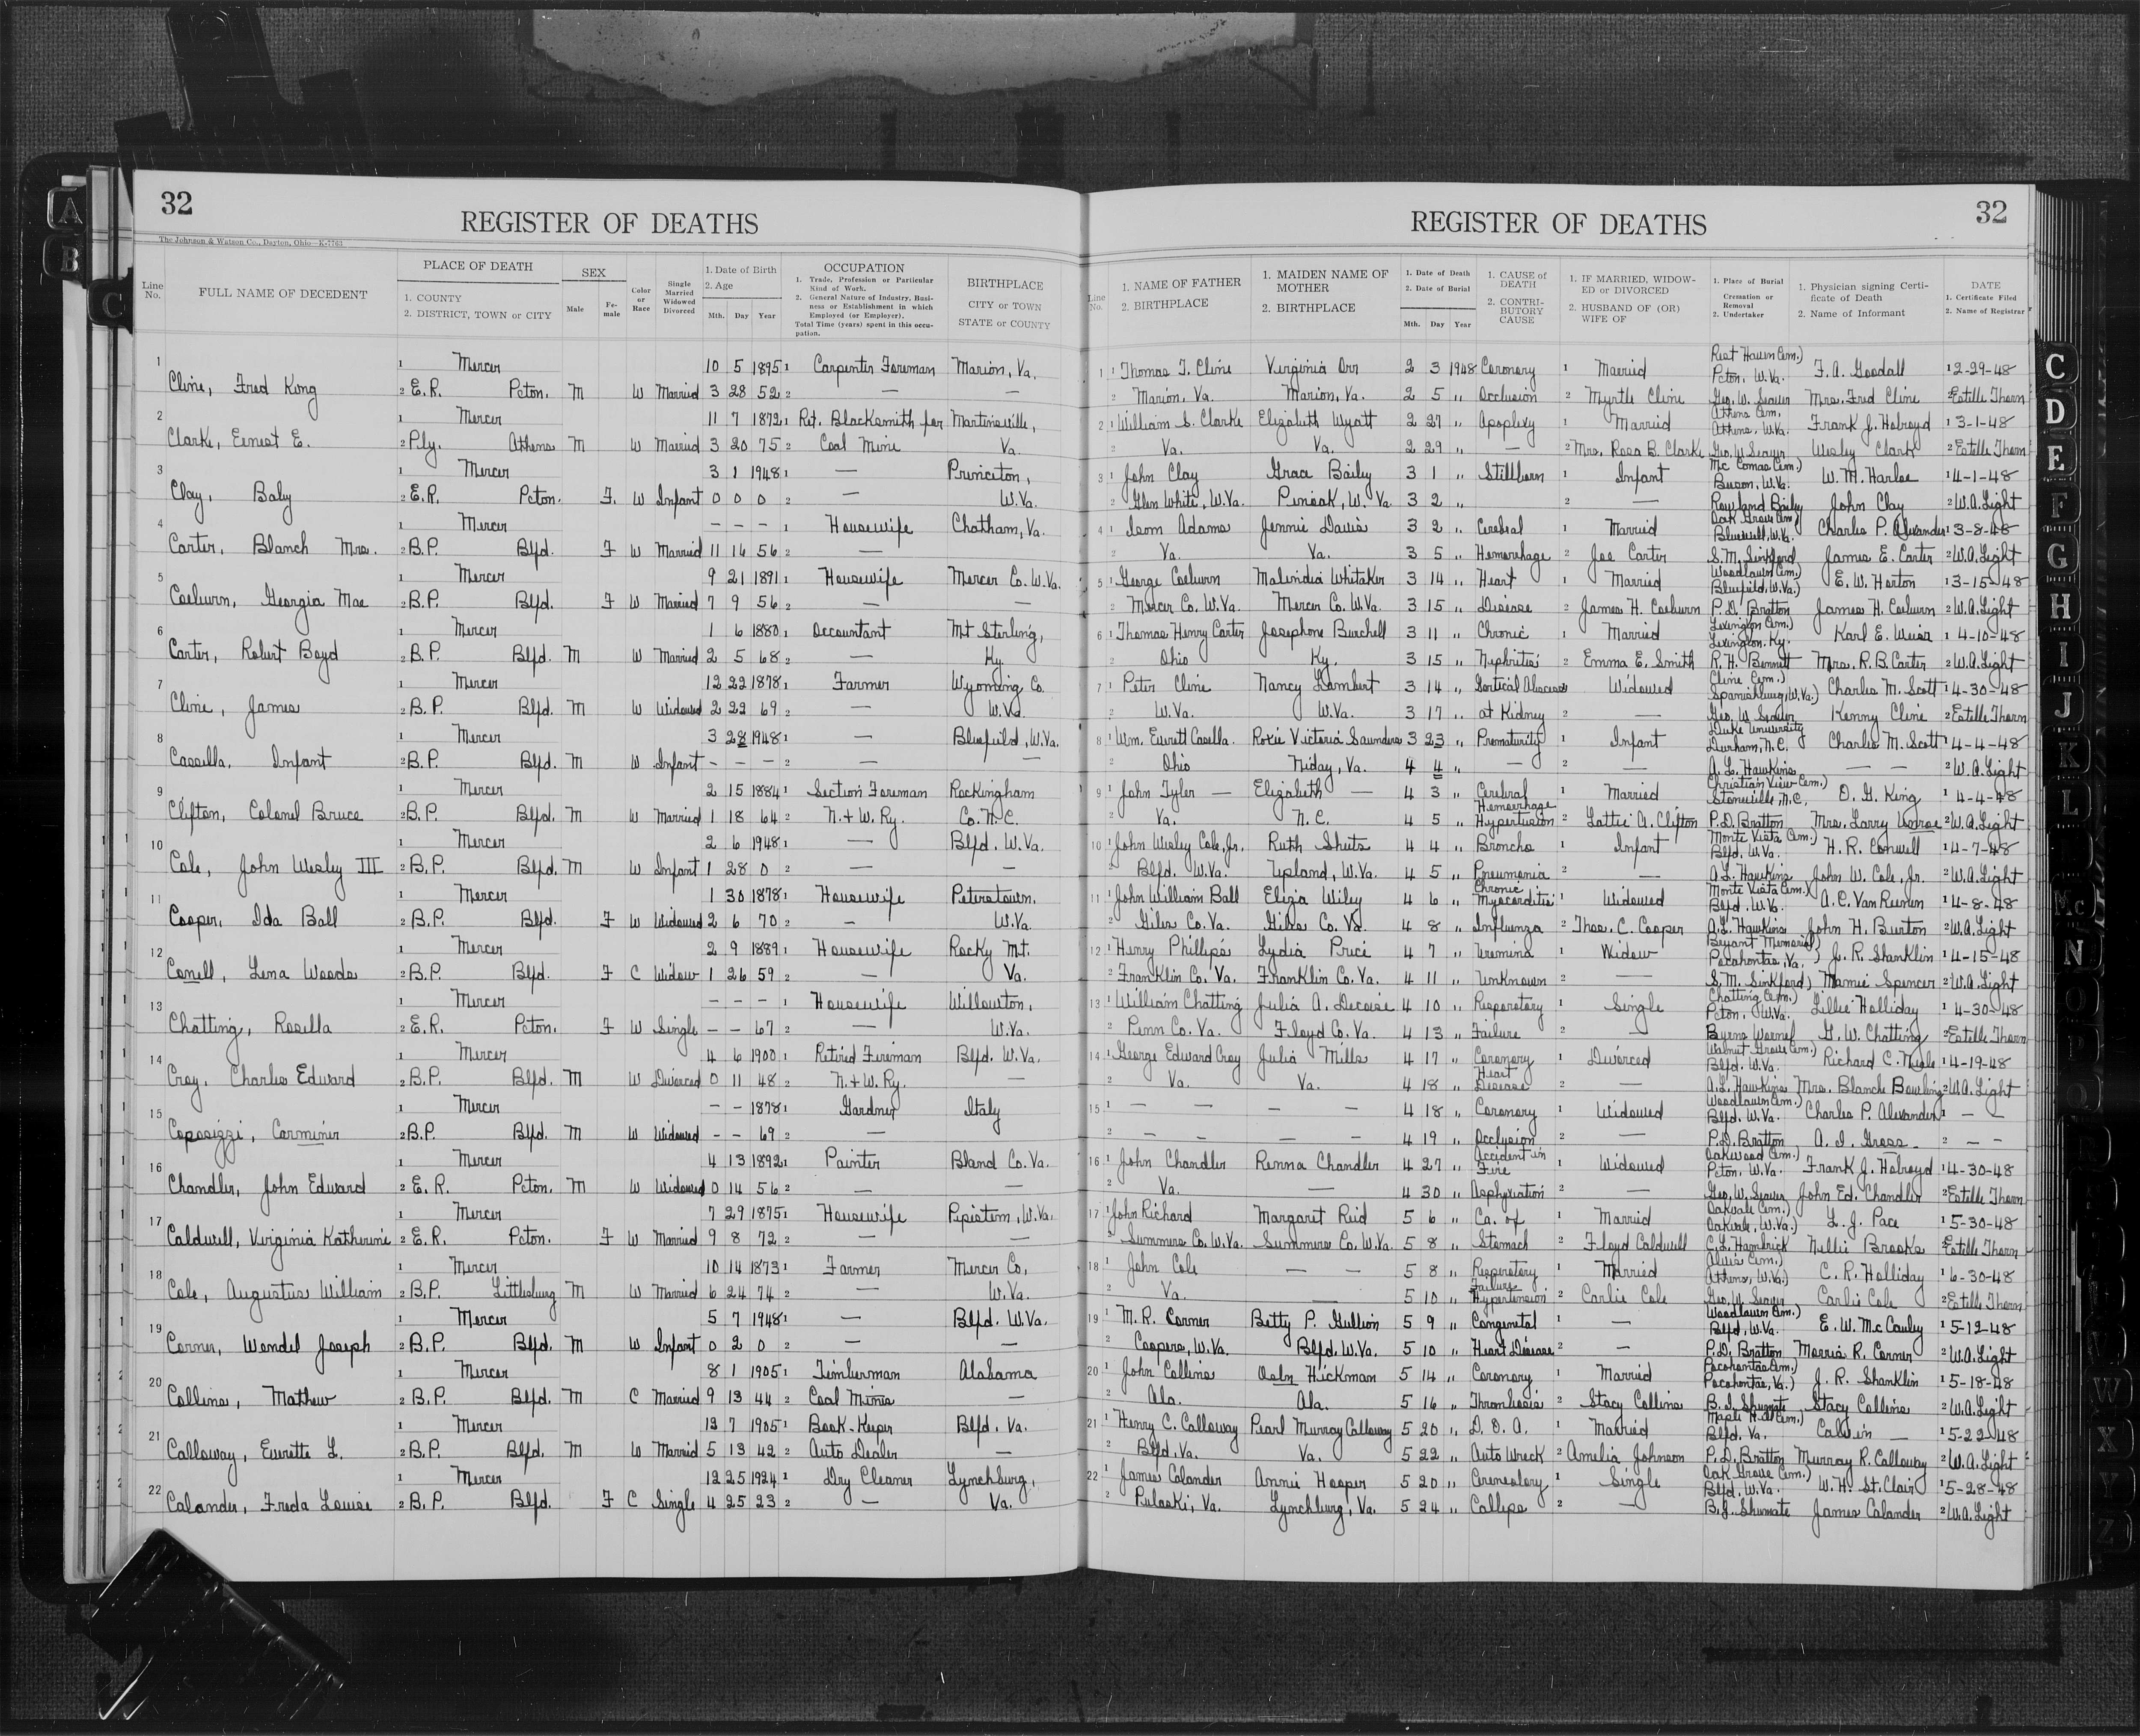 32
REGISTER OF DEATHS
The Johnson & Watson Co., Dayton, Ohio—K-7763
Line No. FULL NAME OF DECEDENT PLACE OF DEATH 1. COUNTY 2. DISTRICT, TOWN or CITY SEX Male Female Color or Race Single Married Widowed Divorced 1. Date of Birth 2. Age Mth. Day Year OCCUPATION 1. Trade, Profession or Particular Kind of Work. 2. General Nature of Industry, Business or Establishment in which Employed (or Employer). Total Time (years) spent in this occupation. BIRTHPLACE CITY or TOWN STATE or COUNTY
1 1 Mercer 10 5 1895 1 Carpenter Foreman Marion, Va.
Cline, Fred King 2 E.R. Pcton. M W Married 3 28 52 2 — —
2 1 Mercer 11 7 1872 1 Ret. Blacksmith for Martinsville,
Clarke, Ernest E. 2 Ply. Athens M W Married 3 20 75 2 Coal Mine Va.
3 1 Mercer 3 1 1948 1 — Princeton,
Clay, Baby 2 E.R. Pcton. F. W Infant 0 0 0 2 — W.Va.
4 1 Mercer – – – 1 Housewife Chatham, Va.
Carter, Blanch Mrs. 2 B.P. Blfd. F W Married 11 16 56 2 —
5 1 Mercer 9 21 1891 1 Housewife Mercer Co. W.Va.
Coeburn, Georgia Mae 2 B.P. Blfd. F W Married 7 9 56 2 — —
6 1 Mercer 1 6 1880 1 Accountant Mt Sterling,
Carter, Robert Boyd 2 B.P. Blfd. M W Married 2 5 68 2 — Ky.
7 1 Mercer 12 22 1878 1 Farmer Wyoming Co.
Cline, James 2 B.P. Blfd. M W Widowed 2 22 69 2 — W.Va.
8 1 Mercer 3 28 1948 1 — Bluefield, W.Va.
Casella, Infant 2 B.P. Blfd. M W Infant – – – 2 — —
9 1 Mercer 2 15 1884 1 Section Foreman Rockingham
Clifton, Colonel Bruce 2 B.P. Blfd. M W Married 1 18 64 2 N.+W. Ry. Co. N.C.
10 1 Mercer 2 6 1948 1 — Blfd. W.Va.
Cole, John Wesley III 2 B.P. Blfd. M W Infant 1 28 0 2 — —
11 1 Mercer 1 30 1878 1 Housewife Peterstown.
Cooper, Ida Ball 2 B.P. Blfd. F W Widowed 2 6 70 2 – W.Va.
12 1 Mercer 2 9 1889 1 Housewife Rocky Mt.
Conell, Lena Woods 2 B.P. Blfd. F C Widow 1 26 59 2 — Va.
13 1 Mercer – – – 1 Housewife Willowton,
Chatting, Rosella 2 E.R. Pcton. F W Single – – 67 2 — W.Va.
14 1 Mercer 4 6 1900 1 Retired Fireman Blfd. W.Va.
Croy, Charles Edward 2 B.P. Blfd. M W Divorced 0 11 48 2 N.+W. Ry. —
15 1 Mercer – – 1878 1 Gardner Italy
Coposizzi, Carminer 2 B.P. Blfd. M W Widowed – – 69 2 —
16 1 Mercer 4 13 1892 1 Painter Bland Co. Va.
Chandler, John Edward 2 E.R. Pcton. M W Widowed 0 14 56 2 — —
17 1 Mercer 7 29 1875 1 Housewife Pipistem, W.Va.
Caldwell, Virginia Katherine 2 E.R. Pcton. F W Married 9 8 72 2 — —
18 1 Mercer 10 14 1873 1 Farmer Mercer Co,
Cole, Augustus William 2 B.P. Littlesburg M W Married 6 24 74 2 — W.Va.
19 1 Mercer 5 7 1948 1 — Blfd. W.Va.
Corner, Wendel Joseph 2 B.P. Blfd. M W Infant 0 2 0 2 — —
20 1 Mercer 8 1 1905 1 Timberman Alabama
Collins, Mathew 2 B.P. Blfd. M C Married 9 13 44 2 Coal Mines —
21 1 Mercer 12 7 1905 1 Book-Keeper Blfd. Va.
Calloway, Everette L. 2 B.P. Blfd. M W Married 5 13 42 2 Auto Dealer —
22 1 Mercer 12 25 1924 1 Dry Cleaner Lynchburg,
Calander, Freda Louise 2 B.P. Blfd. F C Single 4 25 23 2 — Va.
32
REGISTER OF DEATHS
Line No. 1. NAME OF FATHER 2. BIRTHPLACE 1. MAIDEN NAME OF MOTHER 2. BIRTHPLACE 1. Date of Death 2. Date of Burial Mth. Day Year 1. CAUSE of DEATH 2. CONTRIBUTORY CAUSE 1. IF MARRIED, WIDOWED or DIVORCED 2. HUSBAND OF (OR) WIFE OF 1. Place of Burial Cremation or Removal 2. Undertaker 1. Physician signing Certificate of Death 2. Name of Informant DATE 1. Certificate Filed 2. Name of Registrar
1 1 Thomas T. Cline Virginia Orr 2 3 1948 Coronary 1 Married Rest Haven Cem.) Pcton. W.Va. F. A. Goodall 1 2-29-48
2 Marion, Va. Marion, Va. 2 5 " Occlusion 2 Myrtle Cline Geo. W. Seaver Mrs. Fred Cline 2 Estelle Thorn
2 1 William S. Clarke Elizabeth Wyatt 2 27 " Apoplexy 1 Married Athens Cem. Athens, W.Va. Frank J. Holroyd 1 3-1-48
2 Va. Va. 2 29 " — 2 Mrs. Rosa B. Clarke Geo. W. Seaver Wesley Clark 2 Estelle Thorn
3 1 John Clay Grace Baily 3 1 " Stillborn 1 Infant Mc Comas Cem.) W. M. Harloe 1 4-1-48
2 Glen White, W.Va. Pinoak, W. Va. 3 2 " 2 — Rowland Baily John Clay 2 W.A. Light
4 1 Isom Adams Jennie Davis 3 2 " Cerebral 1 Married Oak Grove Cem) Bluewell, W.Va. Charles P. Alexander 1 3-8-48
2 Va. Va. 3 5 " Hemorrhage 2 Joe Carter S.M. Sinkford James E. Carter 2 W.A. Light
5 1 George Coeburn Malindia Whitaker 3 14 " Heart 1 Married Woodlawn Cem.) Bluefield, W.Va.) E. W. Horton 1 3-15-48
2 Mercer Co. W.Va. Mercer Co. W.Va. 3 15 " Disease 2 James H. Coeburn P.D. Bratton James H. Coeburn 2 W.A. Light
6 1 Thomas Henry Carter Josephone Burchell 3 11 " Chronic 1 Married Lexington Cem.) Lexington. Ky. Karl E. Weier 1 4-10-48
2 Ohio Ky. 3 15 " Nephritis 2 Emma E. Smith R. H. Bennett Mrs. R.B. Carter 2 W.A. Light
7 1 Peter Cline Nancy Lambert 3 14 " Cortical Abscesses Widowed Cline Cem.) Spanishburg, W.Va.) Charles M. Scott 1 4-30-48
2 W.Va. W.Va. 3 17 " at Kidney 2 — Geo. W. Seaver Kenny Cline 2 Estelle Thorn
8 1 Wm. Everett Casella. Roxie Victoria Saunders 3 23 " Prematurity 1 Infant Duke University Durham, N.C. Charles M. Scott 1 4-4-48
2 Ohio Niday, Va. 4 4 " — 2 — A. L. Hawkins — — 2 W.A. Light
9 1 John Tyler — Elizabeth — 4 3 " Cerebral Hemorrhage 1 Married Christian View Cem.) Stoneville, N.C, O. G. King 1 4-4-48
2 Va. N.C. 4 5 " Hypertension 2 Lottie A. Clifton P.D. Bratton Mrs. Larry Monroe 2 W.A. Light
10 1 John Wesley Cole, Jr. Ruth Shuts 4 4 " Broncho 1 Infant Monte Vista Cem.) Blfd. W.Va. H. R. Conwell 1 4-7-48
2 Blfd. W.Va. Upland, W.Va. 4 5 " Pneumonia 2 — A.L. Hawkins John W. Cole, Jr. 2 W.A. Light
11 1 John William Ball Eliza Wiley 4 6 " Chronic Myocarditis 1 Widowed Monte Vista Cem.) Blfd. W.Va. A.C. Van Reenen 1 4-8-48
2 Giles Co. Va. Giles Co. Va. 4 8 " Influenza 2 Thos. C. Cooper A.L. Hawkins John H. Burton 2 W.A. Light
12 1 Henry Phillips Lydia Price 4 7 " Uremina 1 Widow Bryant Memorial) Pocahontas, Va. J. R. Shanklin 1 4-15-48
2 Franklin Co. Va. Franklin Co. Va. 4 11 " Unknown 2 — S.M. Sinkford) Mamie Spencer 2 W.A. Light
13 1 William Chatting Julia A. 4 10 " Resporatory 1 Single Chatting Cem.) Pcton, W.Va. Lillie Holliday 1 4-30-48
2 Penn Co. Va. Floyd Co. Va. 4 13 " Failure 2 Byrns G. W. Chatting 2 Estelle Thorn
14 1 George Edward Croy Julia Mills 4 17 " Coronary 1 Divorced Walnut Grove Cem.) Blfd. W.Va. Richard C. Neale 1 4-19-48
2 Va. Va. 4 18 " Heart Disease 2 — A.L. Hawkins Mrs. Blanche Bowling 2 W.A. Light
15 1 — — — — 4 18 " Coronary 1 Widowed Woodlawn Cem.) Blfd. W.Va. Charles P. Alexander 1 – –
2 — — — — 4 19 " Occlusion 2 — P.D. Bratton A. I. Gross 2 – –
16 1 John Chandler Renna Chandler 4 27 " Accident in Fire 1 Widowed Oakwood Cem.) Pcton. W.Va. Frank J. Holroyd 1 4-30-48
2 Va. — 4 30 " Asphyxiation 2 — Geo. W. Seaver John Ed. Chandler 2 Estelle Thorn
17 1 John Richard Margaret Reid 5 6 " Ca. of 1 Married Oakvale Cem.) Oakvale, W.Va.) L. J. Pace 1 5-30-48
2 Summers Co. W.Va. Summers Co. W.Va. 5 8 " Stomach 2 Floyd Caldwell C.L. Hambrick Nellie Brooks Estelle Thorn
18 1 John Cole — — 5 8 " Resporatory Failure 1 Married Alvis Cem.) Athens, W.Va.) C. R. Holliday 1 6-30-48
2 Va. — 5 10 " Hypertension 2 Carlie Cole Geo. W. Seaver Carlie Cole 2 Estelle Thorn
19 1 M. R. Corner Betty P. Gullion 5 9 " Congenital 1 — Woodlawn Cem.) Blfd, W.Va. E. W. McCauley 1 5-12-48
2 Coopers, W.Va. Blfd. W.Va. 5 10 " Heart Disease 2 — P.D. Bratton Morris R. Corner 2 W.A. Light
20 1 John Collins Hickman 5 14 " Coronary 1 Married Pocahontas Cem.) Pocahontas, Va.) J. R. Shanklin 1 5-18-48
2 Ala. Ala. 5 16 " Thrombosis 2 Stacy Collins B. J. Shumate Stacy Collins 2 W.A. Light
21 1 Henry C. Calloway Pearl Murray Calloway 5 20 " D. O. A. 1 Married Maple Hill Cem.) Blfd. Va. Calvin — 1 5-22-48
2 Blfd. Va. Va. 5 22 " Auto Wreck 2 Amelia Johnson P.D. Bratton Murray R. Calloway 2 W.A. Light
22 1 James Calander Annie Hooper 5 20 " 1 Single Oak Grove Cem.) Blfd. W.Va. W. H. St. Clair 1 5-28-48
2 Pulaski, Va. Lynchburg, Va. 5 24 " Collips 2 — B.J. Shumate James Calander 2 W.A. Light
A
B
C
C
D
E
F
G
H
I
J
K
L
Mc
N
O
P
Q
W
X
Y
Z